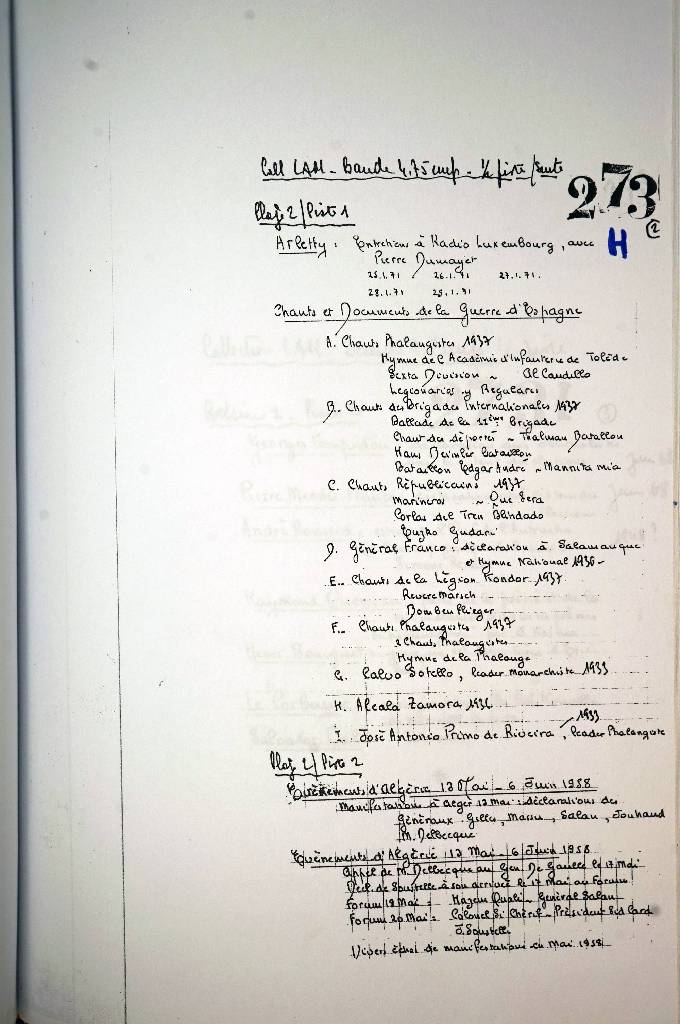 Coll LAM - Bande 4.75 cmp - ½ piste / Suite
273
2
H
Plage 2 / Piste 1
Arletty : Entretiens à Radio Luxembourg, avec
Pierre Dumayet
25.1.71 26.1.71 27.1.71.
28.1.71 29.1.71
Chants et Documents de la Guerre d'Espagne
A. Chants Phalangistes 1937
Hymne de l'Académie d'Infanterie de Tolède
Sexta Division ~ Al Caudillo
Legionarios y Regulares
B. Chants des Brigades Internationales 1937
Ballade de la 11ème Brigade
Chant des déportés ~ Thalman Batallon
Hans Beimler bataillon
Bataillon Edgar André ~ Mannita mia
C. Chants Républicains 1937
Marineros ~ Que Sera
Corlas del Tren Blindado
Eujko Gudari
D. Général Franco : déclaration à Salamanque
et Hymne National 1936 -
E. Chants de la Légion Kondor 1937
Revere Marsch
Bomben Flieger
F. Chants Phalangistes 1937
2 Chants Phalangistes
Hymne de la Phalange
G. Calvo Sotello, leader monarchiste 1933
H. Alcala Zamora 1936
1933
I. José Antonio Primo de Riveira, leader Phalangiste
Plage 2 / Piste 2
Evènements d'Algérie 13 Mai - 6 Juin 1958
Manifestations à Alger 13 mai : déclarations des
Généraux Gilles, Massu, Salan, Jouhaud
M. Delbecque
Evènements d'Algérie 13 Mai - 6 Juin 1958
Appel de M. Delbecque au Gen De Gaulle le 17 Mai
Décl. de Soustelle à son arrivée le 17 Mai au Forum
Forum 19 Mai = Général Salan
Forum 20 Mai = Colonel Si Chérif - Président Sid Cara
J. Soustelle
Divers de manifestations en Mai 1958